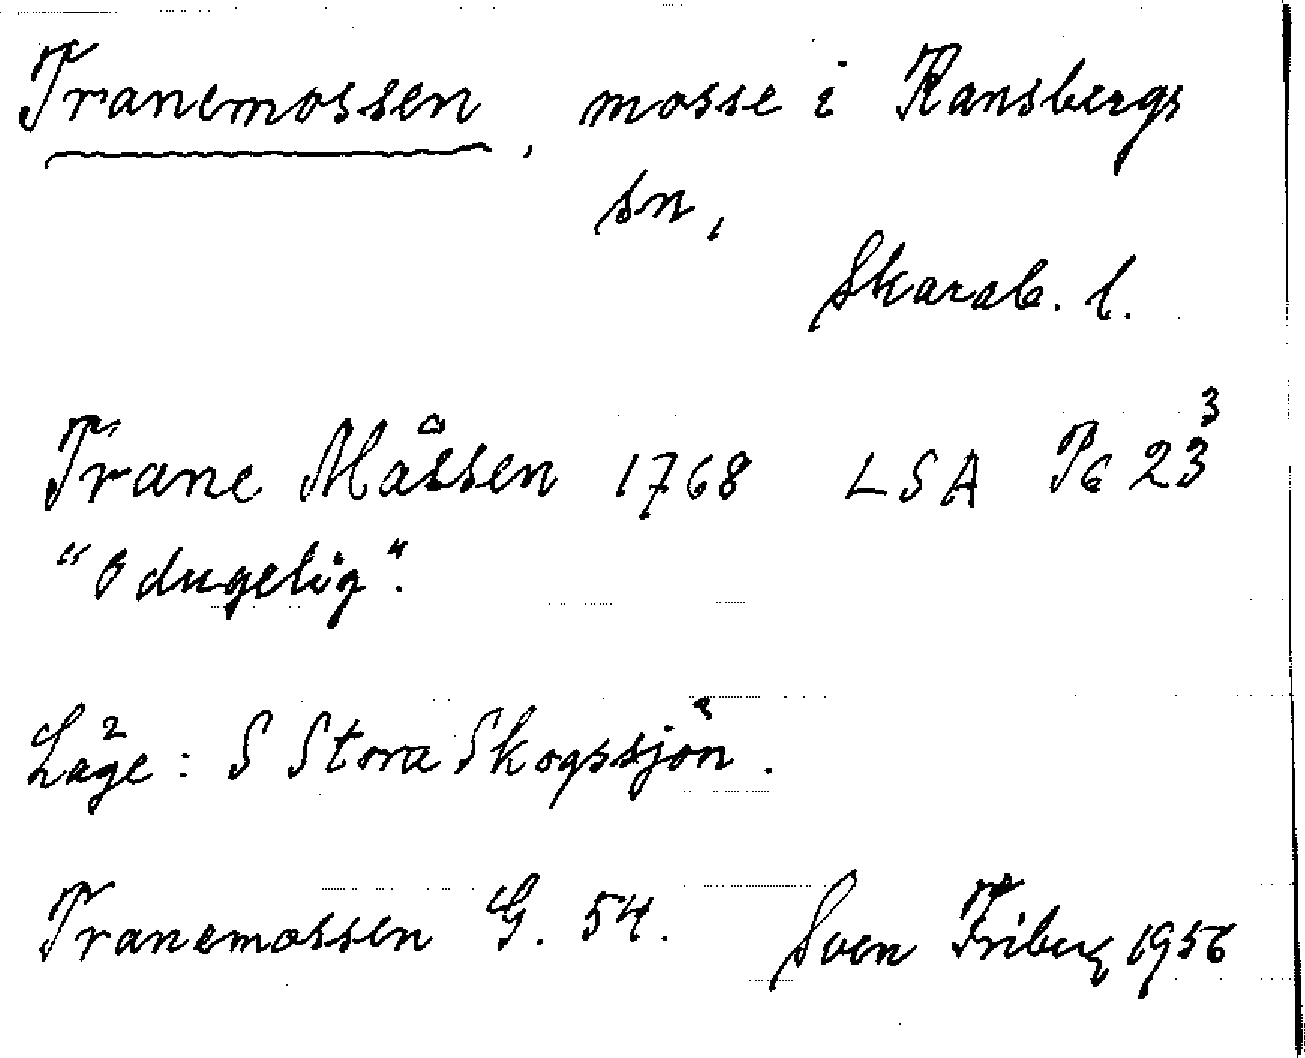 Tranemossen, mosse i Ransbergs
sn,
Skarab. l.
Trane Måssen 1768 LSA P6 23³
"Odugelig".
Läge: S Stora Skogssjön.
Tranemossen G. 54. Sven Friberg 1956